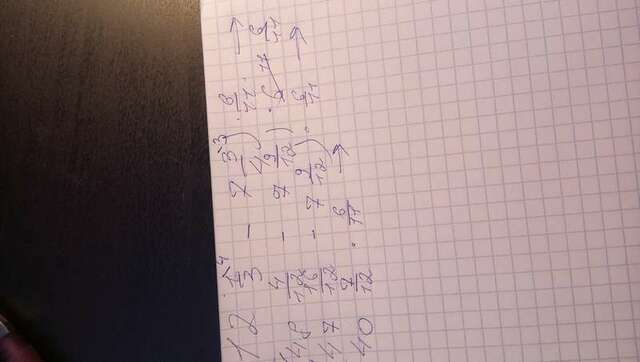 12 1⁴/3 - 7 3³/4) · 6/11 →
48 4/12 - 7 9/12) · 6/11
47 16/12 - 7 9/12) · 6/11 →
40 7/12 · 6/11 →